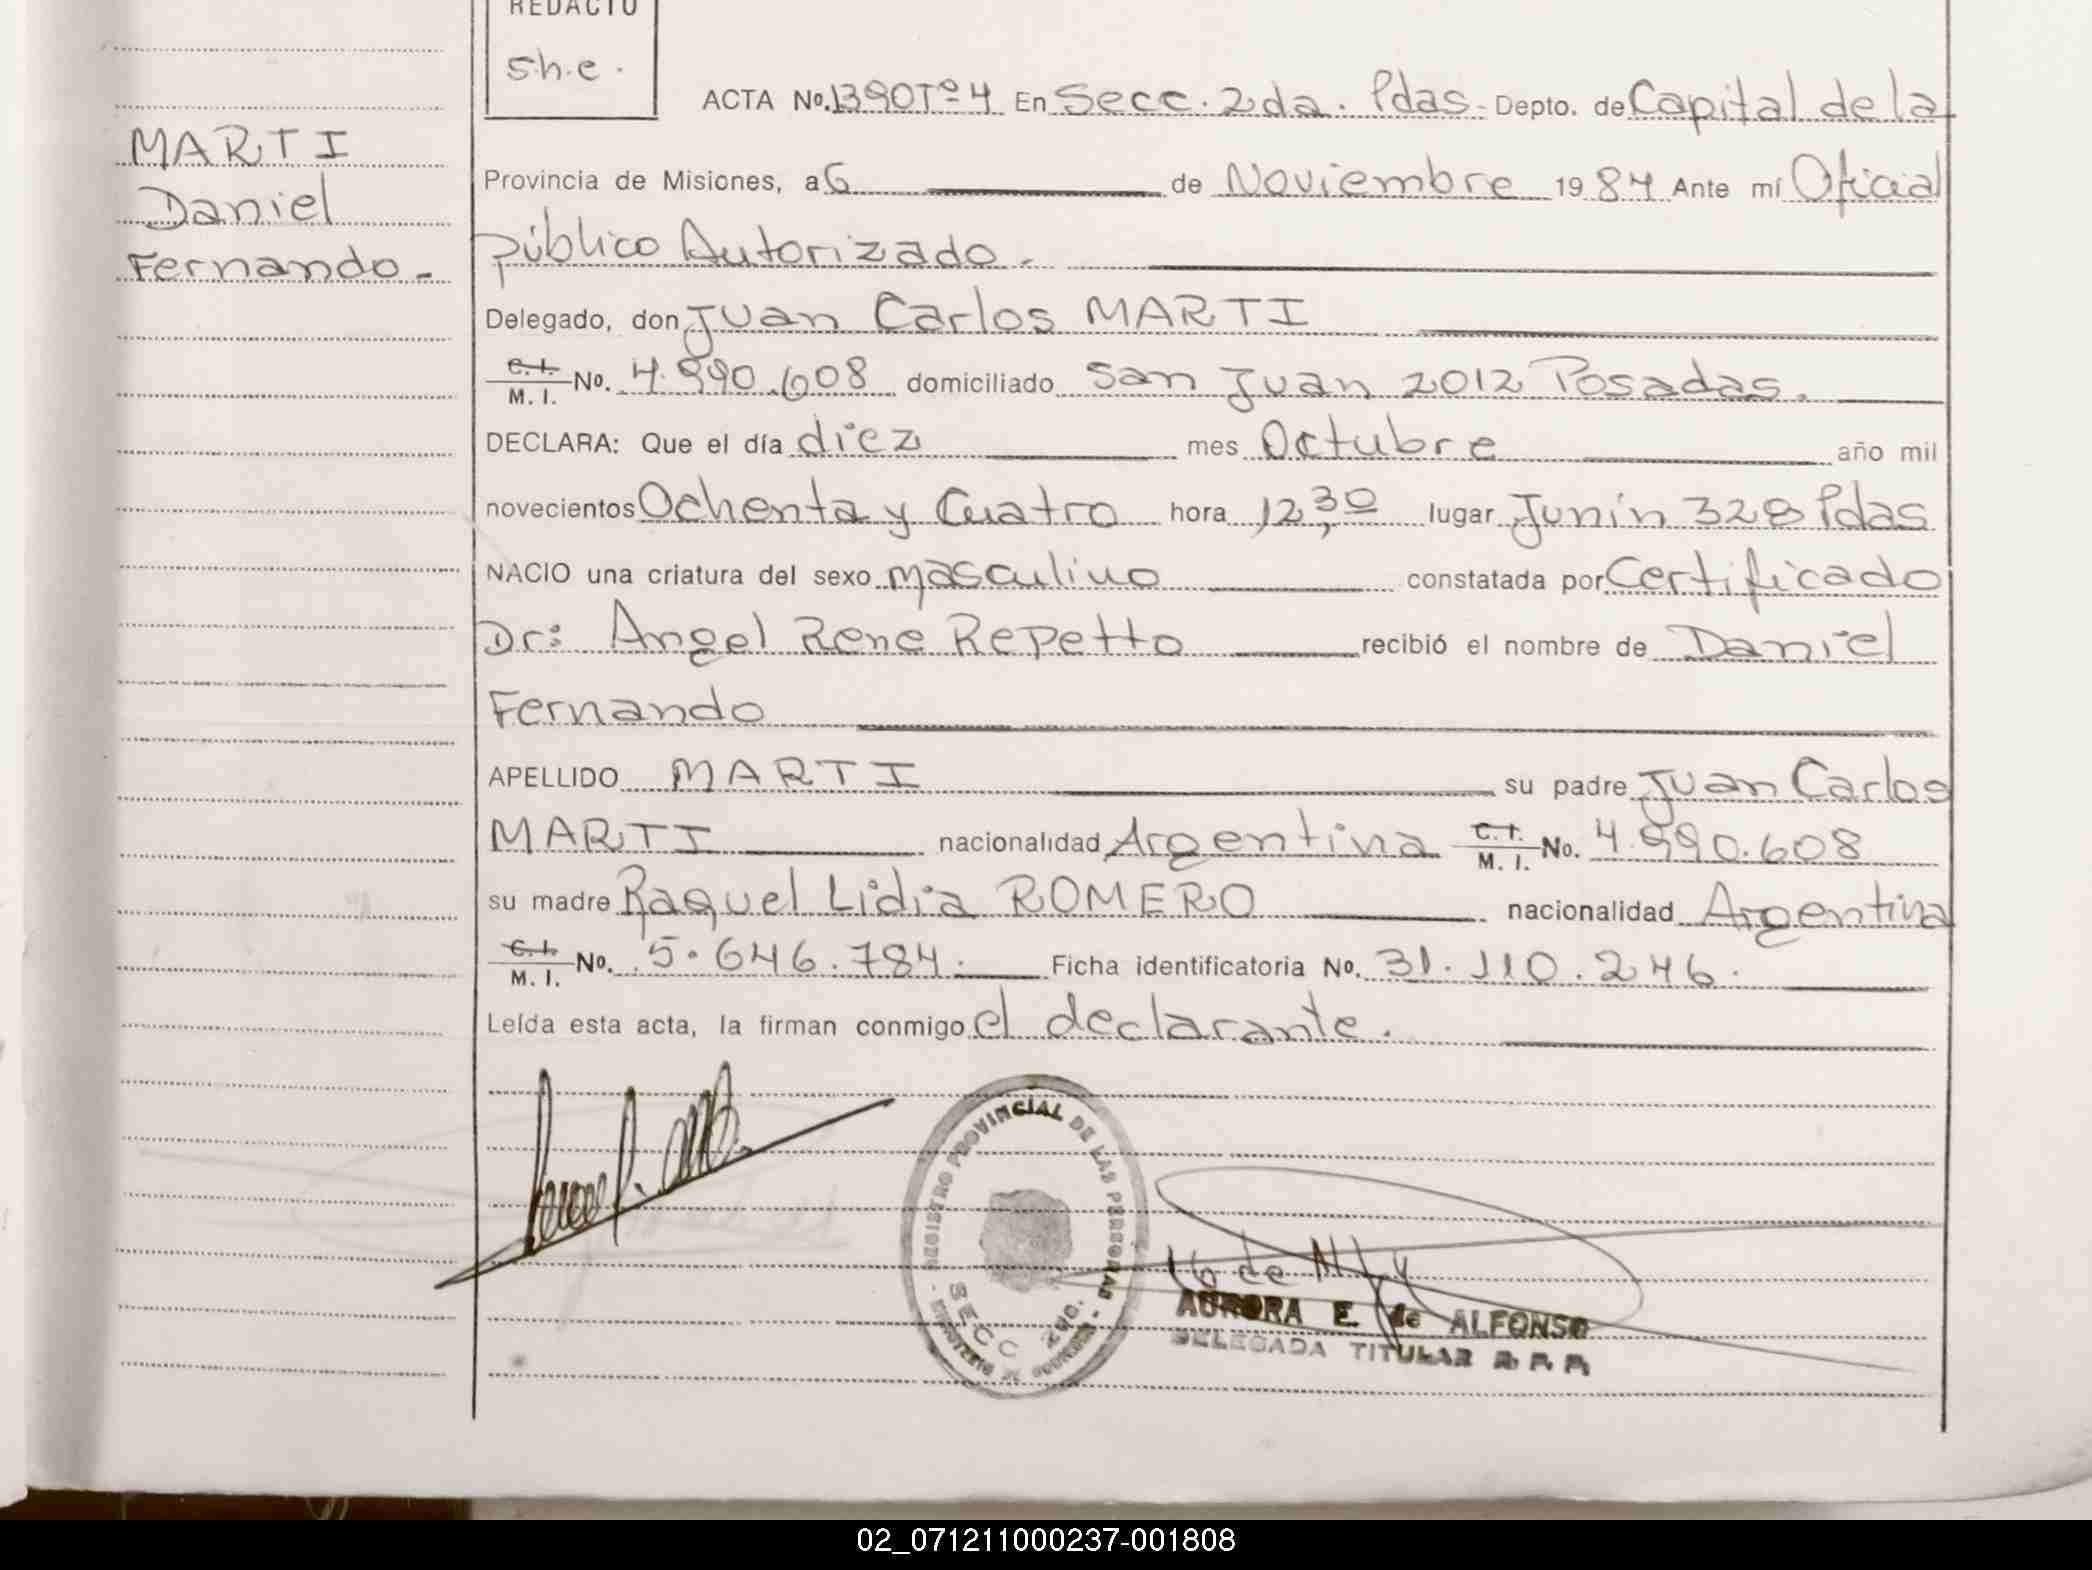 REDACTO
S.h.e.
ACTA No. 1390 Tº 4 En Secc. 2da. Pdas. Depto. de Capital de la
MARTI
Daniel
Fernando.-
Provincia de Misiones, a 6 de Noviembre 1984 Ante mí Oficial
público Autorizado.
Delegado, don Juan Carlos MARTI
C.I. M.I. No. 4.990.608 domiciliado San Juan 2012 Posadas.
DECLARA: Que el día diez mes Octubre año mil
novecientos Ochenta y Cuatro hora 12,30 lugar Junín 328 Pdas
NACIO una criatura del sexo masculino constatada por Certificado
Dr: Angel Rene Repetto recibió el nombre de Daniel
Fernando
APELLIDO MARTI su padre Juan Carlos
MARTI nacionalidad Argentina C.I. M.I. No. 4.990.608
su madre Raquel Lidia ROMERO nacionalidad Argentina
C.I. M.I. No. 5.646.784. Ficha identificatoria No. 31.110.246.
Leída esta acta, la firman conmigo el declarante.
REGISTRO PROVINCIAL DE LAS PERSONAS
SECC 2da.
AURORA E. de ALFONSO
DELEGADA TITULAR R. P. P.
02_071211000237-001808